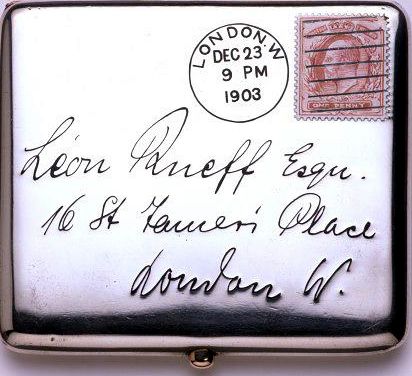 LONDON.W
DEC 23
9 PM
1903
ONE PENNY
Léon Rueff Esqu.
16 St James's Place
London W.